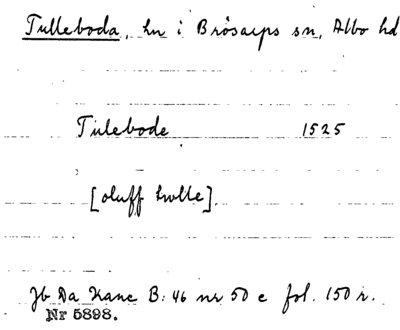 Tulleboda, hn i Brösarps sn, Albo hd
Tulebode 1525
[oluff holle].
Jb Da Kanc B: 46 nr 50 c fol. 150 r.
Nr 5898.